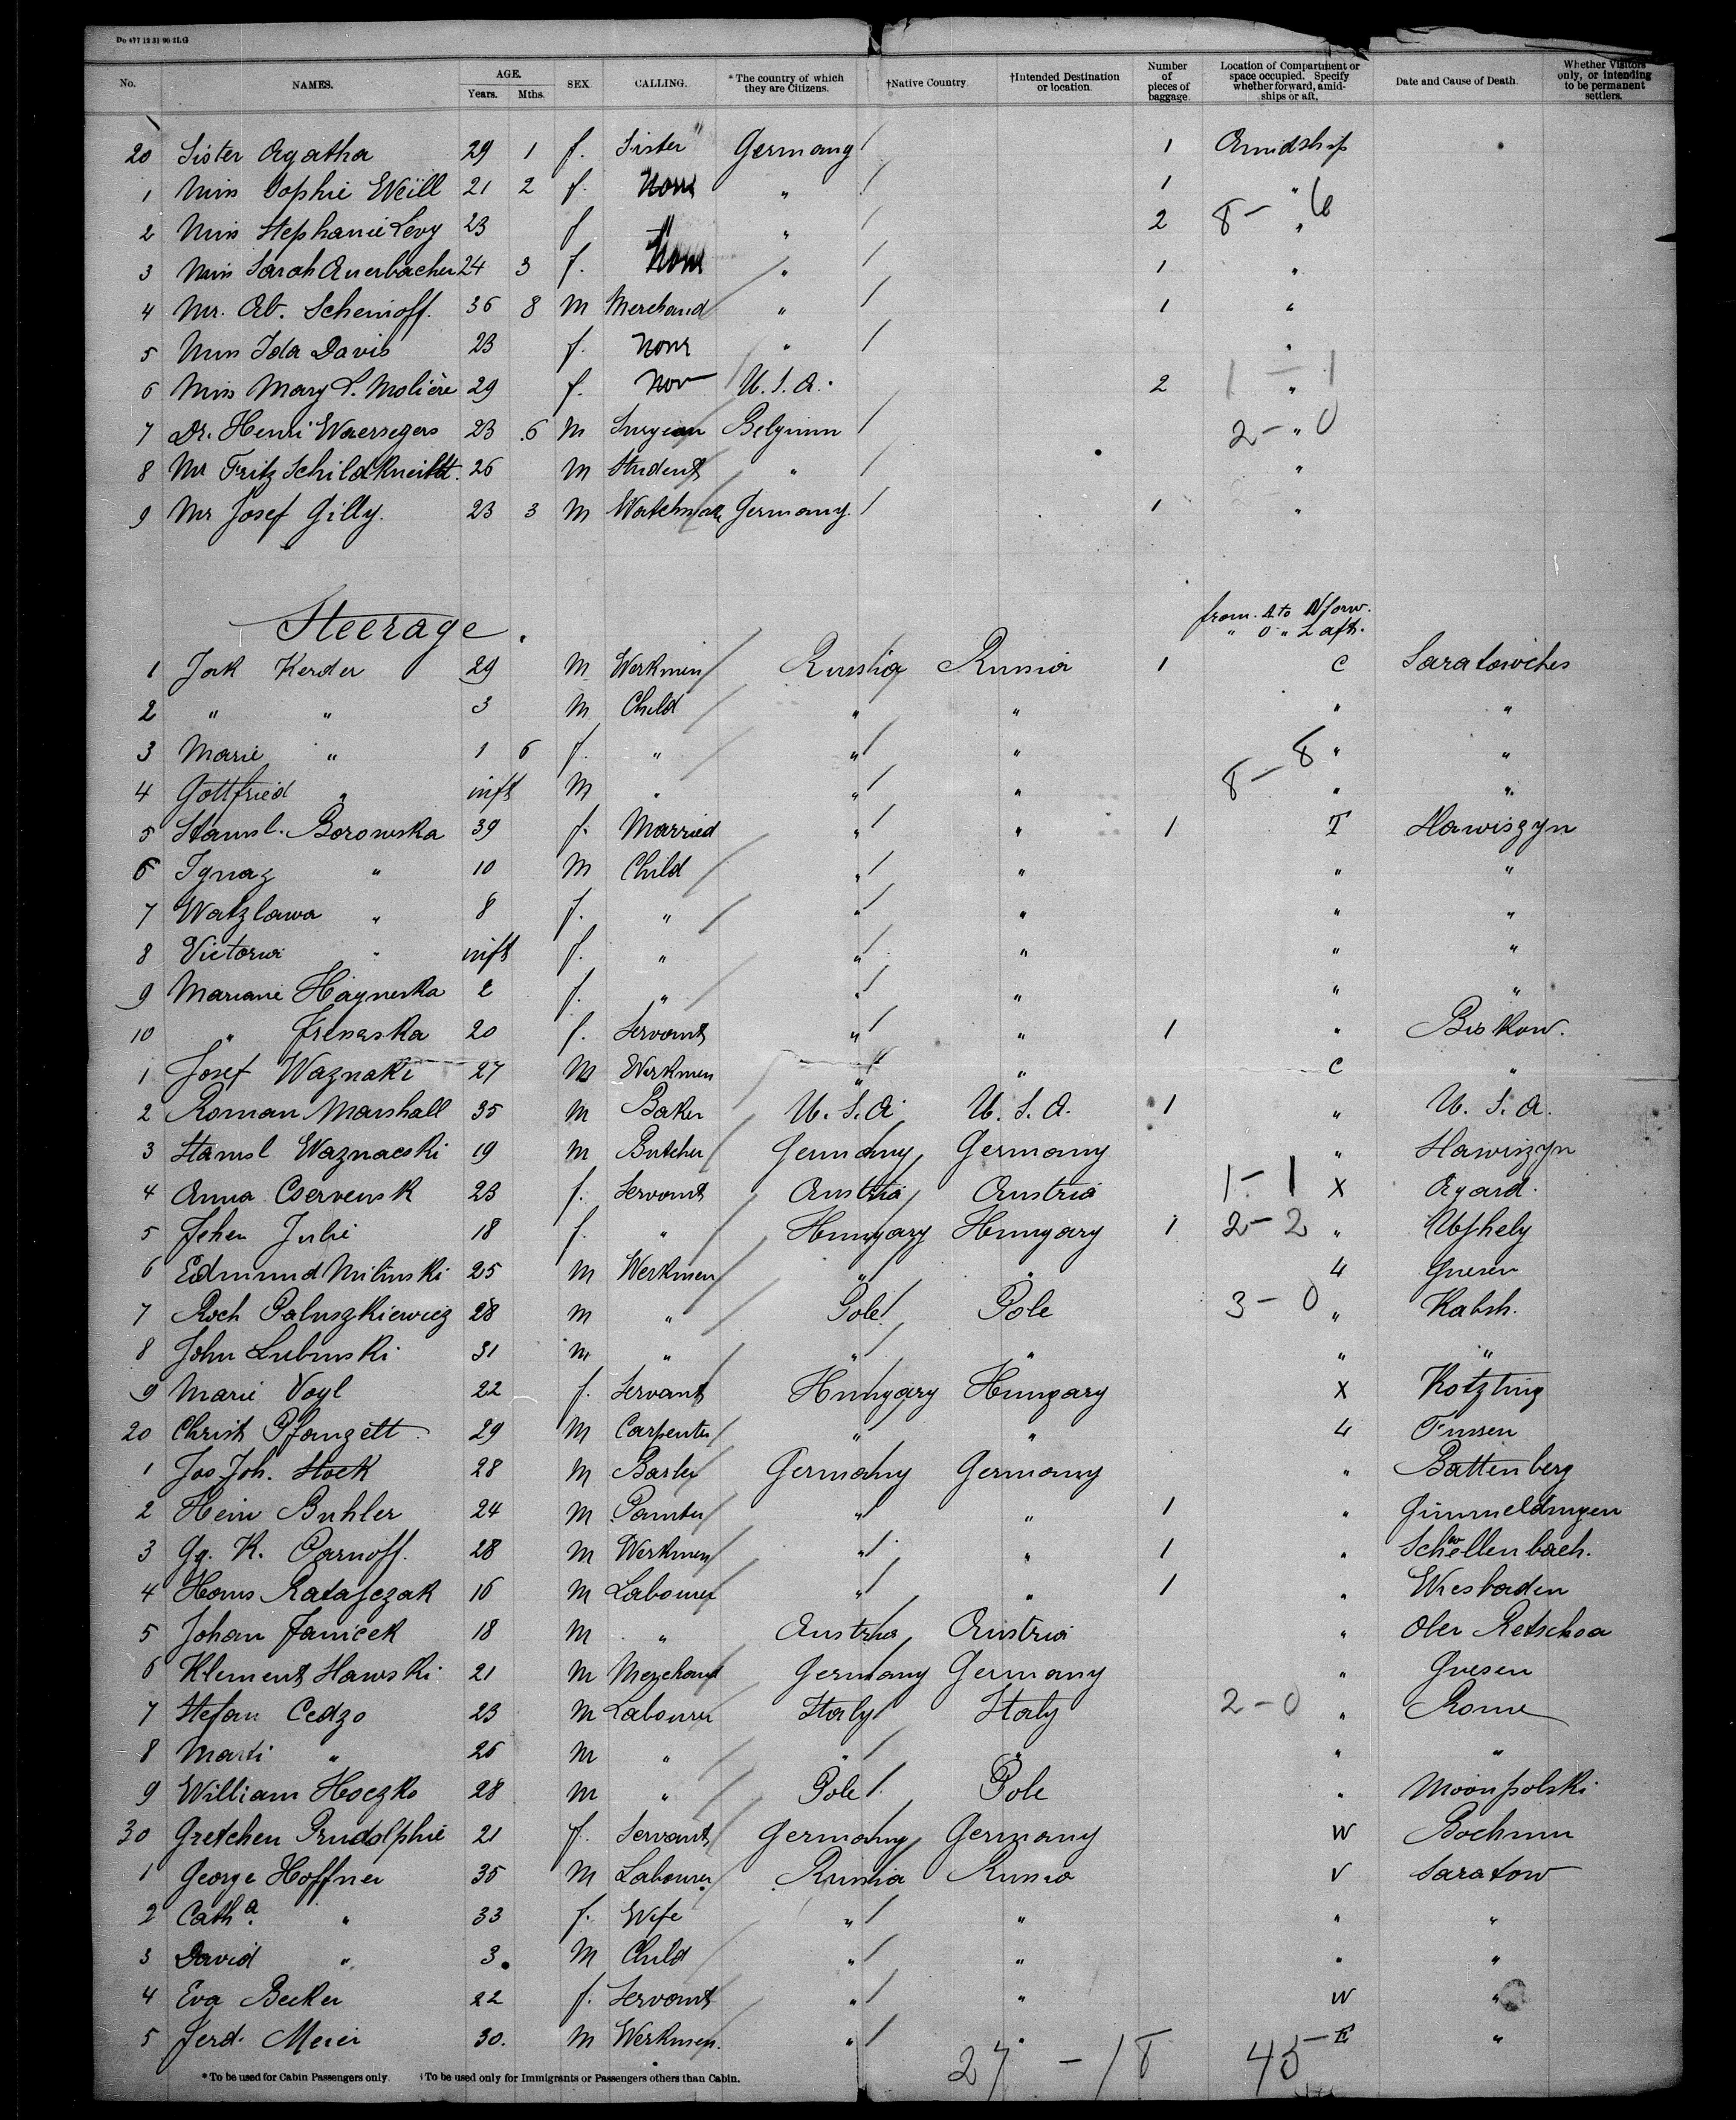 Do 477 12 31 90 2LG
No. NAMES. AGE. Years. Mths. SEX. CALLING. * The country of which they are Citizens. †Native Country. †Intended Destination or location. Number of pieces of baggage. Location of Compartment or space occupied. Specify whether forward, amidships or aft. Date and Cause of Death. Whether Visitors only, or intending to be permanent settlers.
20 Sister Agatha 29 1 f. Sister Germany / 1 Amidship
1 Miss Sophie Weill 21 2 f. None " / 1 "
2 Miss Stephanie Levy 23 f " / 2 8 - 6 "
3 Miss Sarah Auerbacher 24 3 f. None " / 1 "
4 Mr. Ab. Schemoff. 36 8 M Merchand " / 1 "
5 Miss Ida Davis 23 f. None " / "
6 Miss Mary L. Molière 29 f. Non U.S.A. 2 1 - 1 "
7 Dr. Henri Waersegers 23 6 M Surgeon Belgium / 2 - 0 "
8 Mr Fritz Schildkneitht. 26 M Student " / "
9 Mr Josef Gilly. 23 3 M Watchmak Germany. / 1 "
Steerage.
from A to N forw.
" O " Z aft.
1 Jak Kerder 29 M Werkmen Russia Russia 1 C Saratowiches
2 " " 3 M Child " " " "
3 Marie " 1 6 f. " " / " 8 " "
4 Gottfried " inft M " " / " 8 - " "
5 Stanisl. Borowska 39 f. Married " / " 1 T Slawiszyn
6 Ignaz " 10 M Child " / " " "
7 Watzlawa " 8 f. " " / " " "
8 Victoria " inft f. " " / " " "
9 Mariane Hayneska 2 f. " " / " " "
10 " Freneska 20 f. Servant " / " 1 " Biskow.
1 Josef Waznaki 27 M Werkmen " " C "
2 Roman Marshall 35 M Baker U.S.A. U.S.A. 1 " U.S.A.
3 Stanisl Waznaeski 19 M Butcher Germany Germany " Slawiszyn
4 Anna Cservensk 23 f. Servant Austria Austria 1 - 1 X Agard.
5 Feher Julie 18 f. " Hungary Hungary 1 2 - 2 " Ujhely
6 Edmund Milinski 25 M Werkmen " / " 4 Gnesen
7 Roch Paluszkiewicz 28 M " Pole / Pole 3 - 0 " Kabsh.
8 John Lubinski 31 M " " / " " "
9 Marie Vogl 22 f. Servant Hungary Hungary X Kotzting
20 Christ Pfanzelt 29 M Carpenter " / " 4 Fussen
1 Jos Joh. Stock 28 M Germany Germany " Battenberg
2 Hein Buhler 24 M Painter " / " 1 " Gimmeldingen
3 Gg. K. Parnoff. 28 M Werkmen " / " 1 " Schwellenbach.
4 Hans Ratajczak 16 M Labourer " / " 1 " Wiesbaden
5 Johan Janicek 18 M " Austria Austria " Ober Retschoa
6 Klement Slawski 21 M Merchand Germany Germany " Gnesen
7 Stefan Cedzo 23 M Labourer Italy Italy 2 - 0 " Rome
8 Marti " 26 M " " / " " "
9 William Hoczko 28 M " Pole / Pole " Moonpolski
30 Gretchen Prudolphie 21 f. Servant Germany Germany W Bochum
1 George Hoffner 35 M Labourer Russia Russia V Saratow
2 Cath.a " 33 f. Wife " / " " "
3 David " 3 M Child " / " " "
4 Eva Becker 22 f. Servant " / " W "
5 Ferd. Meier 30. M Werkmen. " / " E "
27 - 18 45
* To be used for Cabin Passengers only. †To be used only for Immigrants or Passengers others than Cabin.